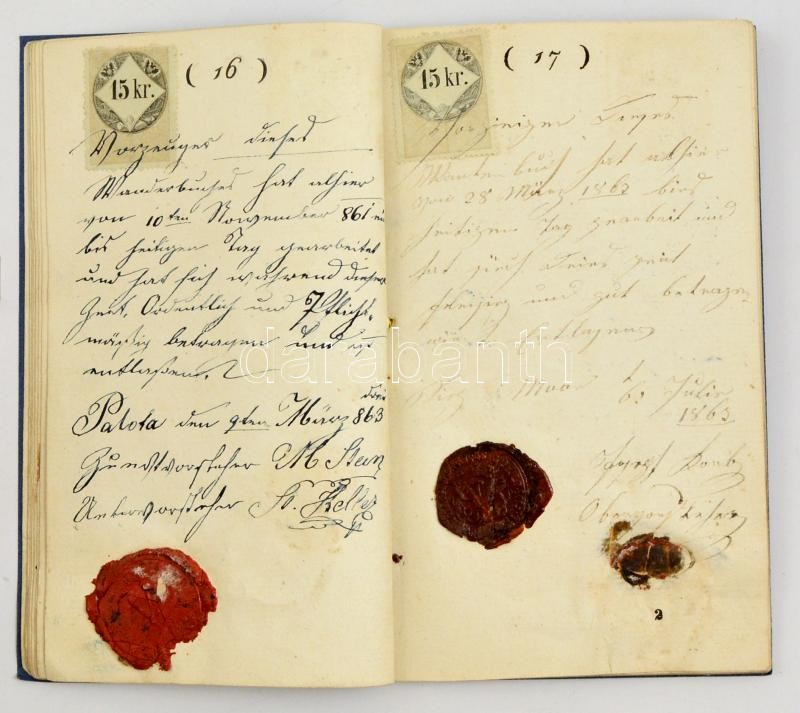 15 kr.
( 16 )
Vorzeuger dieses
Wanderbuches hat alhier
von 10ten November 861
bis heitigen Tag gearbeitet
und hat sich während dieser
Zeit, Ordentlich und Pflicht-
mäßig betragen und ist
entlaßen.
Palota den 9ten März 863
Zunftvorsteher M Stein
Untervorsteher St. Keller
15 kr.
( 17 )
Vorzeiger Dieses
Wanderbuch hat alhier
von 28 März 1863 bis
heitigen Tag gearbeit und
hat sich
fleisig und gut betragen
Moor 6. Juli
1863
Obervorsteher
2
darabanth